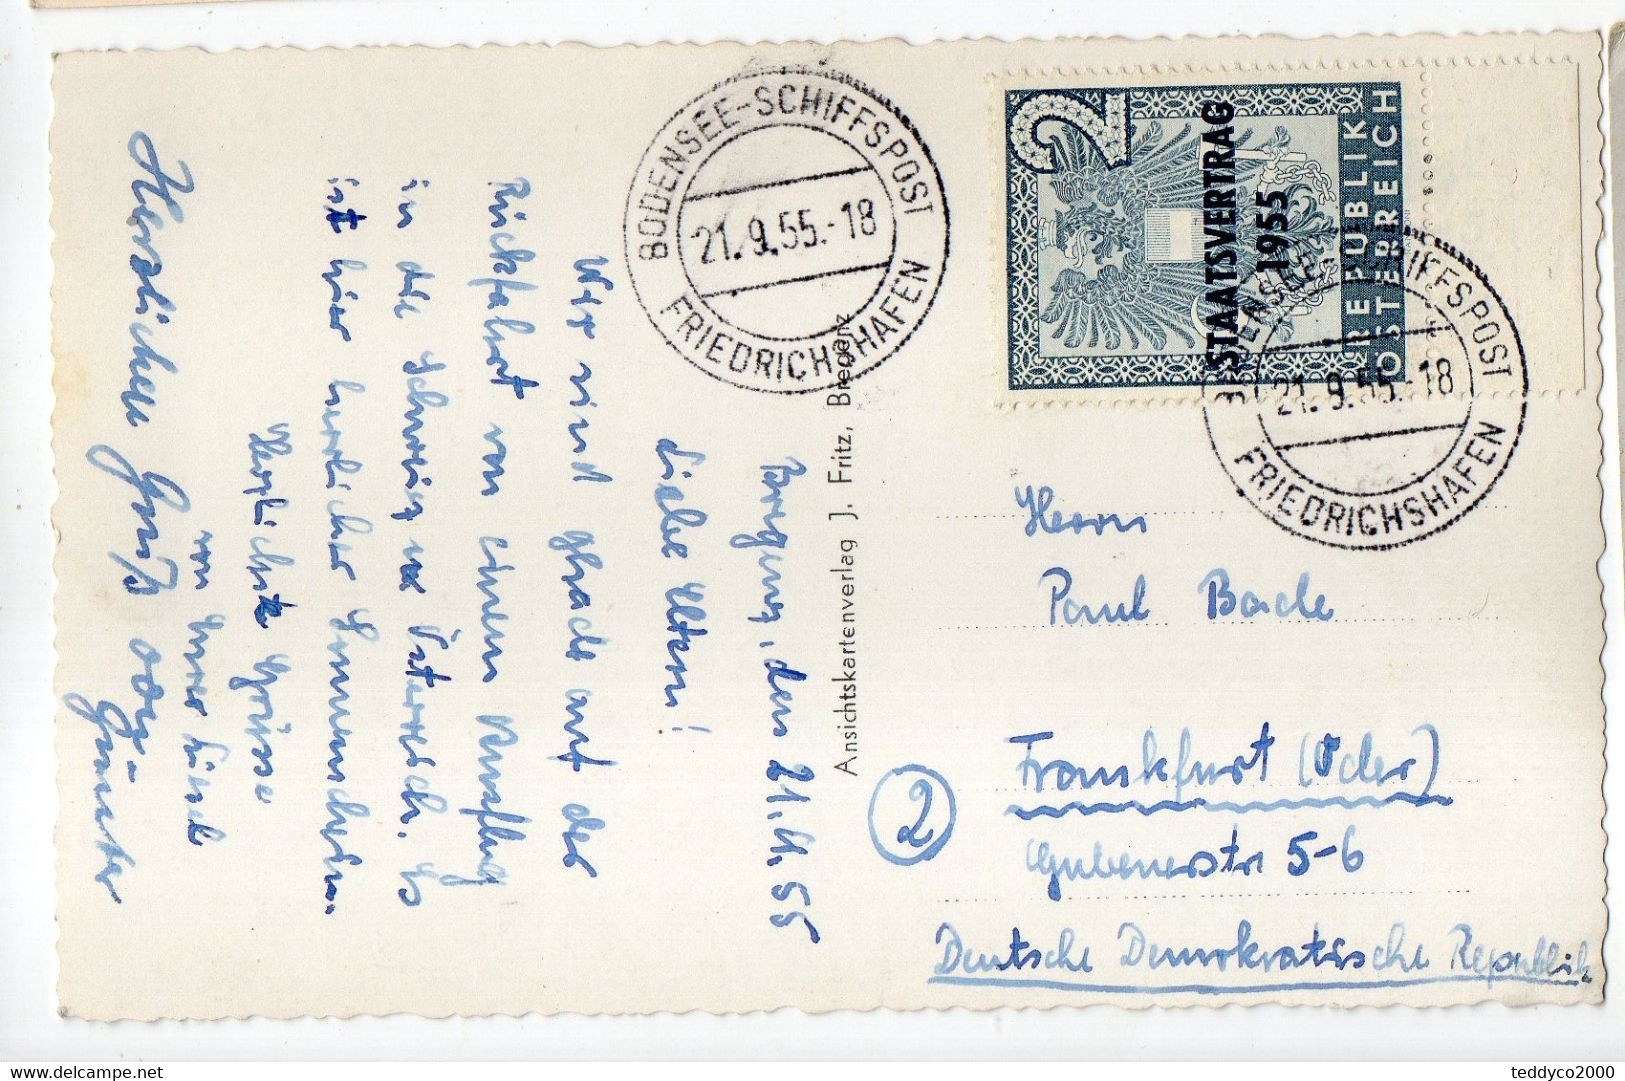 Bregenz, den 21.9.55
Liebe Eltern!
Wir sind grade auf der
Rückfahrt von einem Ausflug
in die Schweiz u. Österreich. Es
ist hier herrlicher Sonnenschein.
Herzlichste Grüsse
von Eurer
Herzlichen Gruß
Günter
Ansichtskartenverlag J. Fritz, Bregenz
BODENSEE-SCHIFFSPOST
21.9.55.-18
FRIEDRICHSHAFEN
2
STAATSVERTRAG
1955
REPUBLIK
OSTERREICH
BODENSEE-SCHIFFSPOST
21.9.55.-18
FRIEDRICHSHAFEN
Herrn
Paul Bade
2
Frankfurt (Oder)
Gubenerstr 5-6
Deutsche Demokratische Republik
teddyco2000